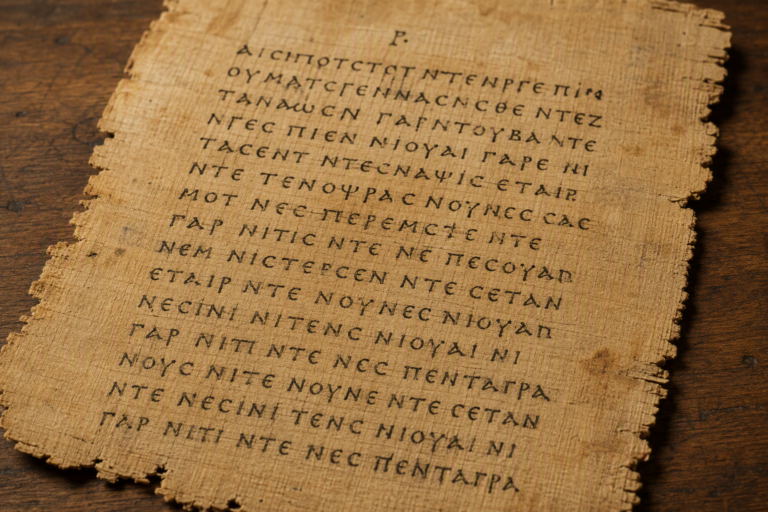 Ρ.
ΑΙϹΙΠΟΤϹΤΟΤ ΝΤΕΝΡΓΕ
ΟΥΜΑΤϹΓΕΝΝΑϹΝϹΘΕ ΝΤΕΖ
ΤΑΝΑѠϹΝ ΓΑΡΝΤΟΥΒΑ ΝΤΕ
ΝΓΕϹ ΠΙΕΝ ΝΙΟΥΑΙ ΓΑΡΕ ΝΙ
ΤΑϹΕΝΤ ΝΤΕϹΝΑΨΙϹ ΕΤΑΙΡ
ΝΤΕ ΤΕΝΟΨΡΑϹ ΝΟΥΝϹϹ ϹΑϹ
ΜΟΤ ΝΕϹ ΝΤΕ
ΓΑΡ ΝΙΤΙϹ ΝΤΕ ΝΕ ΠΕϹΟΥΑΠ
ΝΕΜ ΝΙϹΤΕΡϹΕΝ ΝΤΕ ϹΕΤΑΝ
ΕΤΑΙΡ ΝΤΕ ΝΟΥΝΕϹ ΝΙΟΥΑΠ
ΝΕϹΙΝΙ ΝΙΤΕΝϹ ΝΙΟΥΑΙ ΝΙ
ΓΑΡ ΝΙΤΙ ΝΤΕ ΝΕϹ ΠΕΝΤΑΓΡΑ
ΝΟΥϹ ΝΙΤΕ ΝΟΥΝΕ ΝΤΕ ϹΕΤΑΝ
ΝΤΕ ΝΕϹΙΝΙ ΤΕΝϹ ΝΙΟΥΑΙ ΝΙ
ΓΑΡ ΝΙΤΙ ΝΤΕ ΝΕϹ ΠΕΝΤΑΓΡΑ